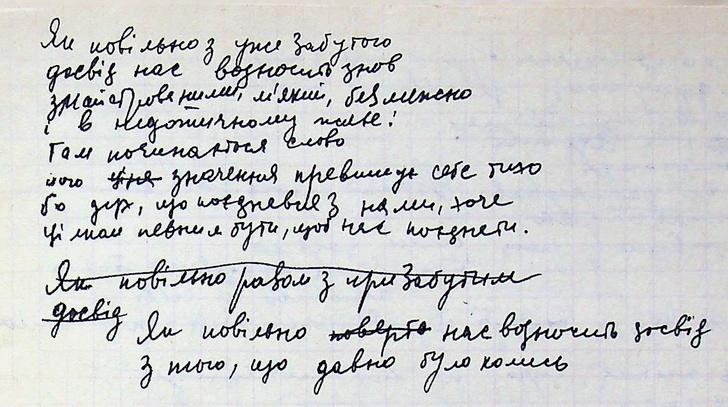 Як повільно з уже забутого
досвід нас возносить знов
і в недотичному живе!
Там починається слово
його ціна значення превишує себе тихо
бо дух, що поєднився з нами, хоче
цілком певним бути, щоб нас поєднати.
Як повільно разом з призабутим
досвід
Як повільно поверта нас возносить досвід
з того, що давно було колись